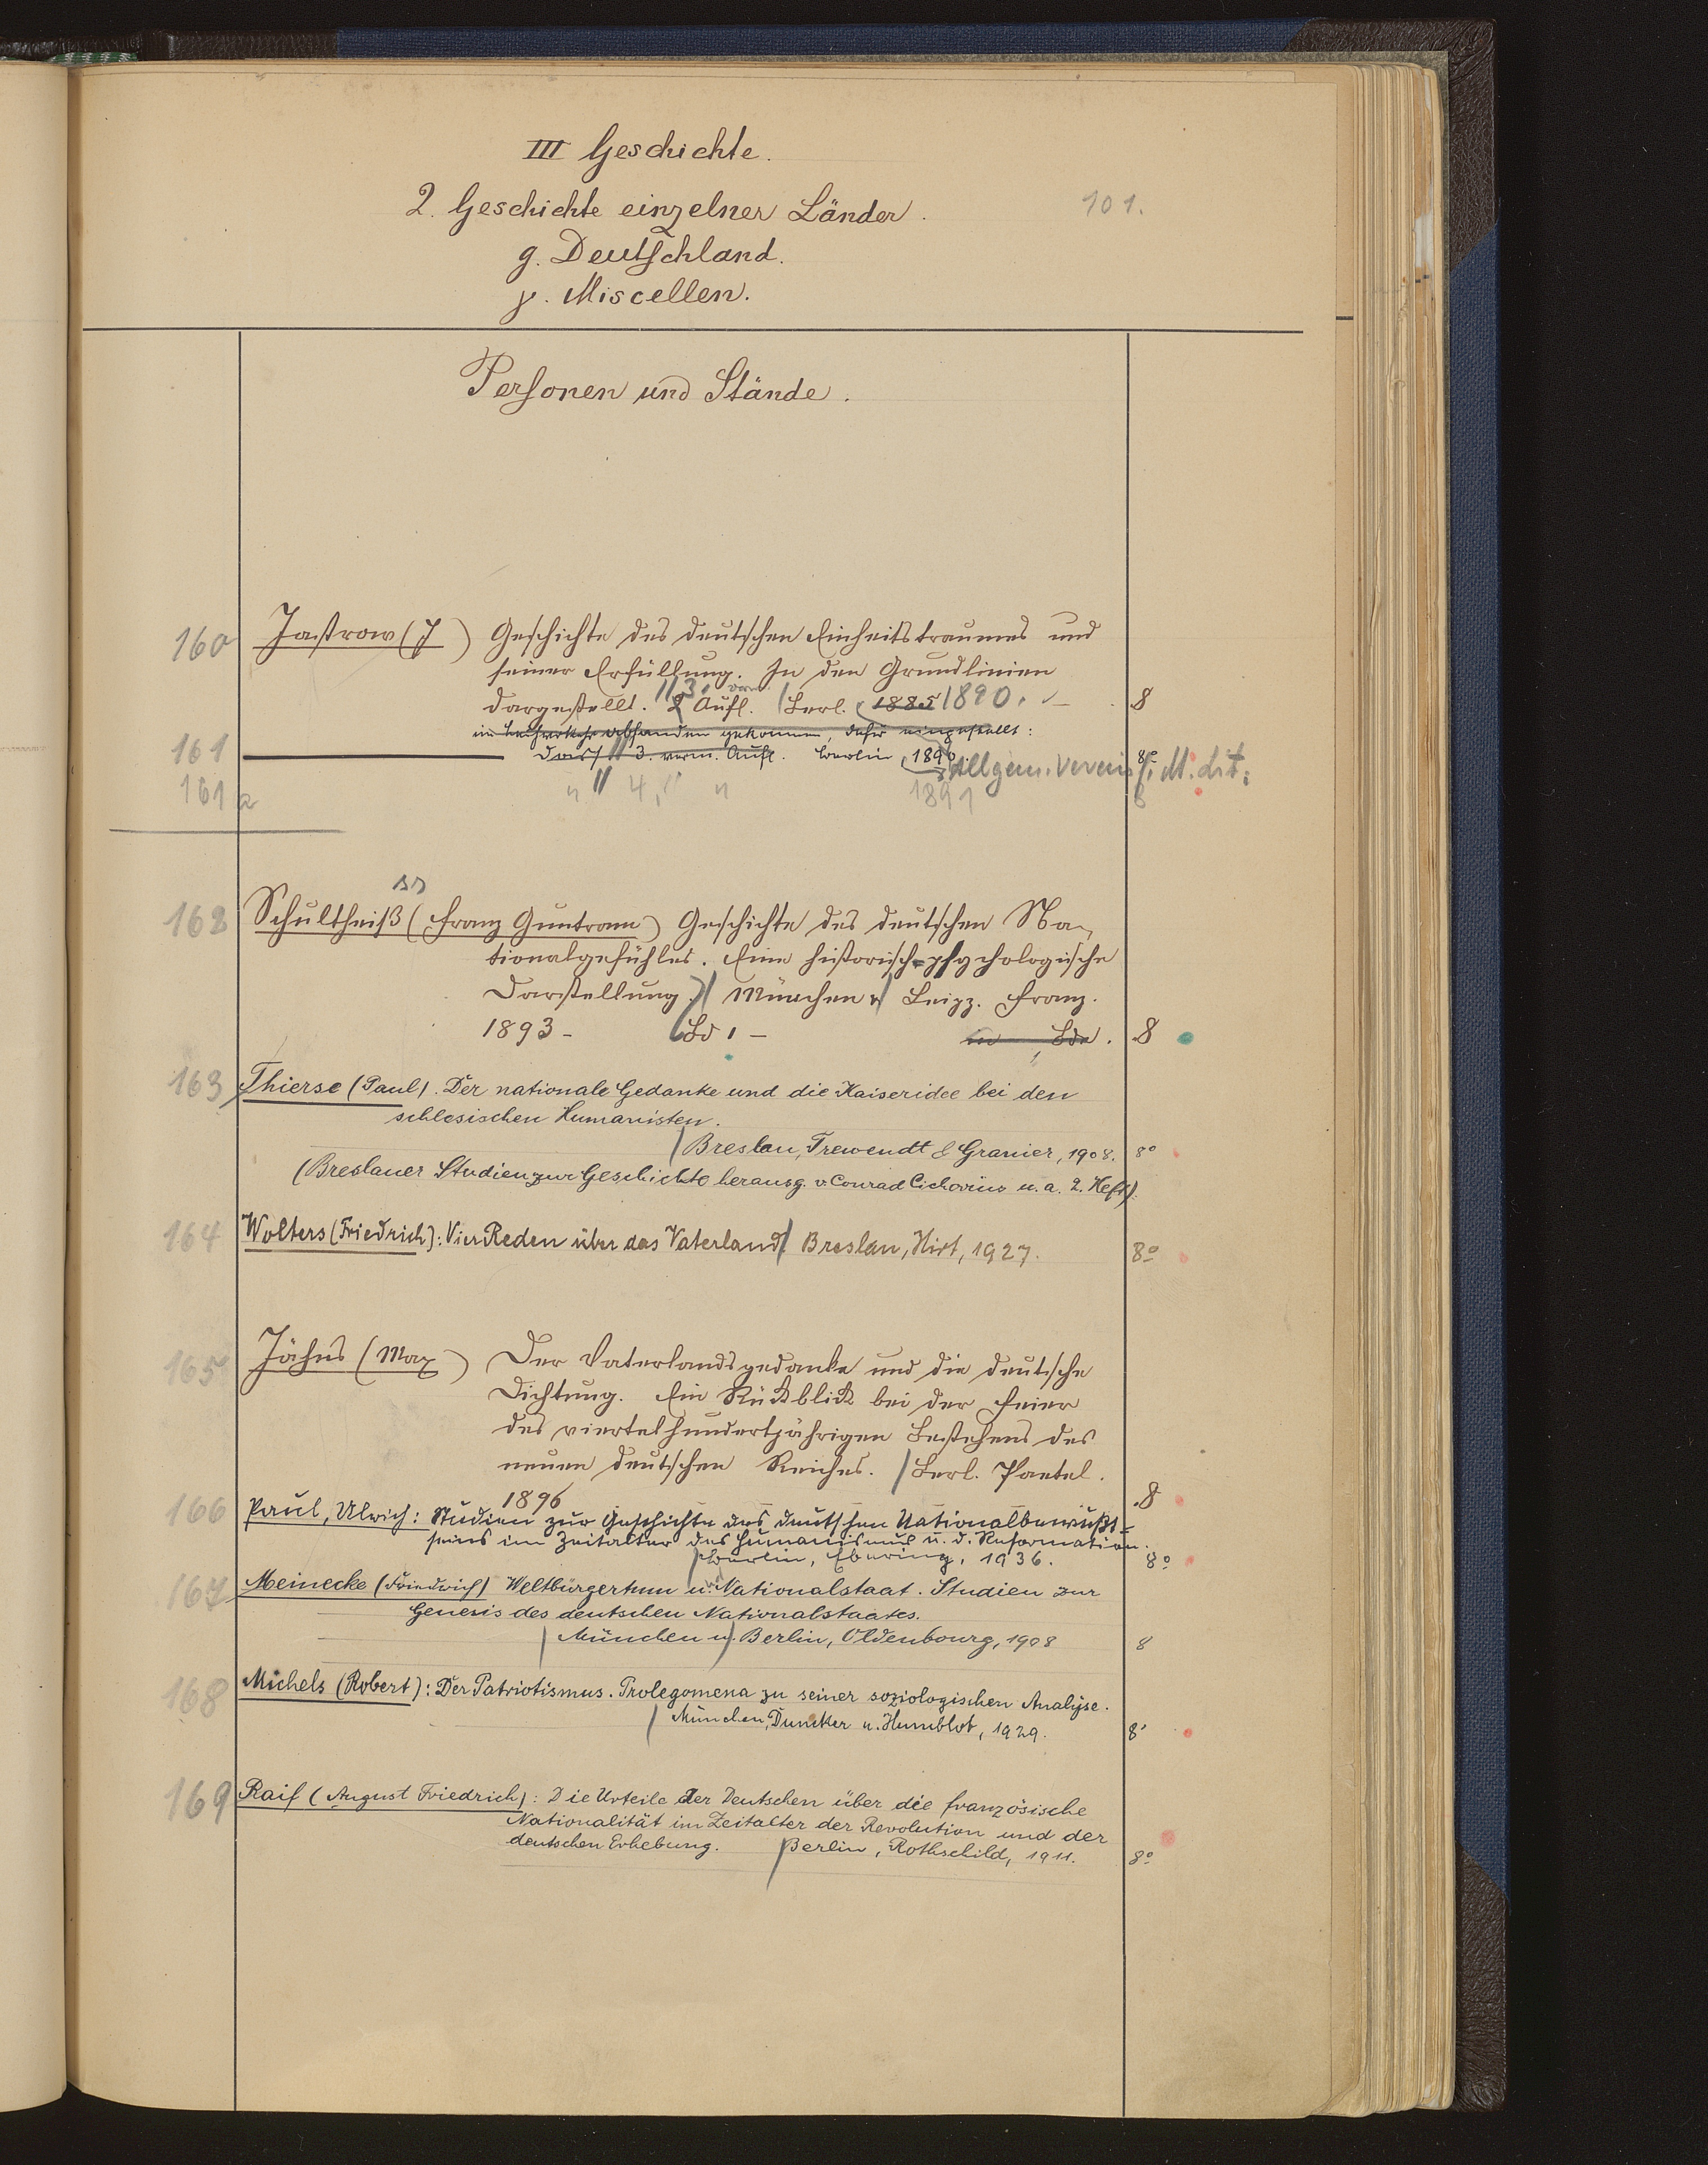 III Geschichte.
2. Geschichte einzelner Länder.
101.
g. Deutschland.
γ. Miscellen.
Personen und Stände.
160 Jastrow (J) Geschichte des deutschen Einheitstraumes und
seiner Erfüllung. In den Grundlinien
dargestellt. // 3. verm. 2 Aufl. / Berl. 1885 1890. 8
im Leihverkehr abhanden gekommen, dafür eingestellt:
161 Dass. // 3. verm. Aufl. Berlin, 1890 Allgem. Verein f. dt. Lit. 8°
161a " // 4. " " 1891 8
162 Schultheiß (Franz Guntram) Geschichte des deutschen Na-
ss
tionalgefühles. Eine historisch-psychologische
Darstellung. / München u/ Leipz. Franz.
1893- Bd 1 - in Bde. 8
163 Thierse (Paul). Der nationale Gedanke und die Kaiseridee bei den
schlesischen Humanisten.
/ Breslau, Trewendt & Granier, 1908. 8°
(Breslauer Studien zur Geschichte herausg. v. Conrad Cichorius u. a. 2. Heft).
164 Wolters (Friedrich): Vier Reden über das Vaterland / Breslau, Hirt, 1927. 8°
165 Jähns (Max) Der Vaterlandsgedanke und die deutsche
Dichtung. Ein Rückblick bei der Feier
des viertelhundertjährigen Bestehens des
neuen deutschen Reiches. / Berl. Paetel.
1896 8
166 Paul, Ulrich: Studien zur Geschichte des deutschen Nationalbewußt-
seins im Zeitalter des Humanismus u. d. Reformation.
/ Berlin, Ebering, 1936. 8°
167 Meinecke (Friedrich) Weltbürgertum u. Nationalstaat. Studien zur
Genesis des deutschen Nationalstaates.
/ München u/ Berlin, Oldenbourg, 1908 8
168 Michels (Robert): Der Patriotismus. Prolegomena zu seiner soziologischen Analyse.
/ München, Duncker u. Humblot, 1929. 8°
169 Raif (August Friedrich): Die Urteile der Deutschen über die französische
Nationalität im Zeitalter der Revolution und der
deutschen Erhebung. / Berlin, Rothschild, 1911. 8°